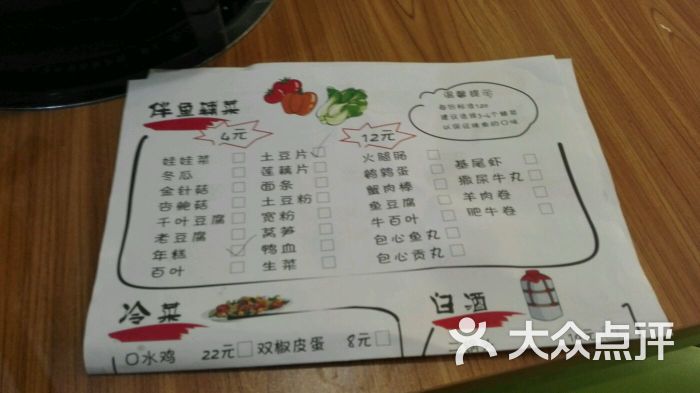 伴鱼蔬菜
4元
娃娃菜
冬瓜
金针菇
杏鲍菇
千叶豆腐
老豆腐
年糕
百叶
土豆片
莲藕片
面条
土豆粉
宽粉
莴笋
鸭血
生菜
12元
火腿肠
鹌鹑蛋
蟹肉棒
鱼豆腐
牛百叶
包心鱼丸
包心贡丸
基尾虾
撒尿牛丸
羊肉卷
肥牛卷
温馨提示
建议选择3-4个
冷菜
口水鸡 22元
双椒皮蛋 8元
白酒
大众点评